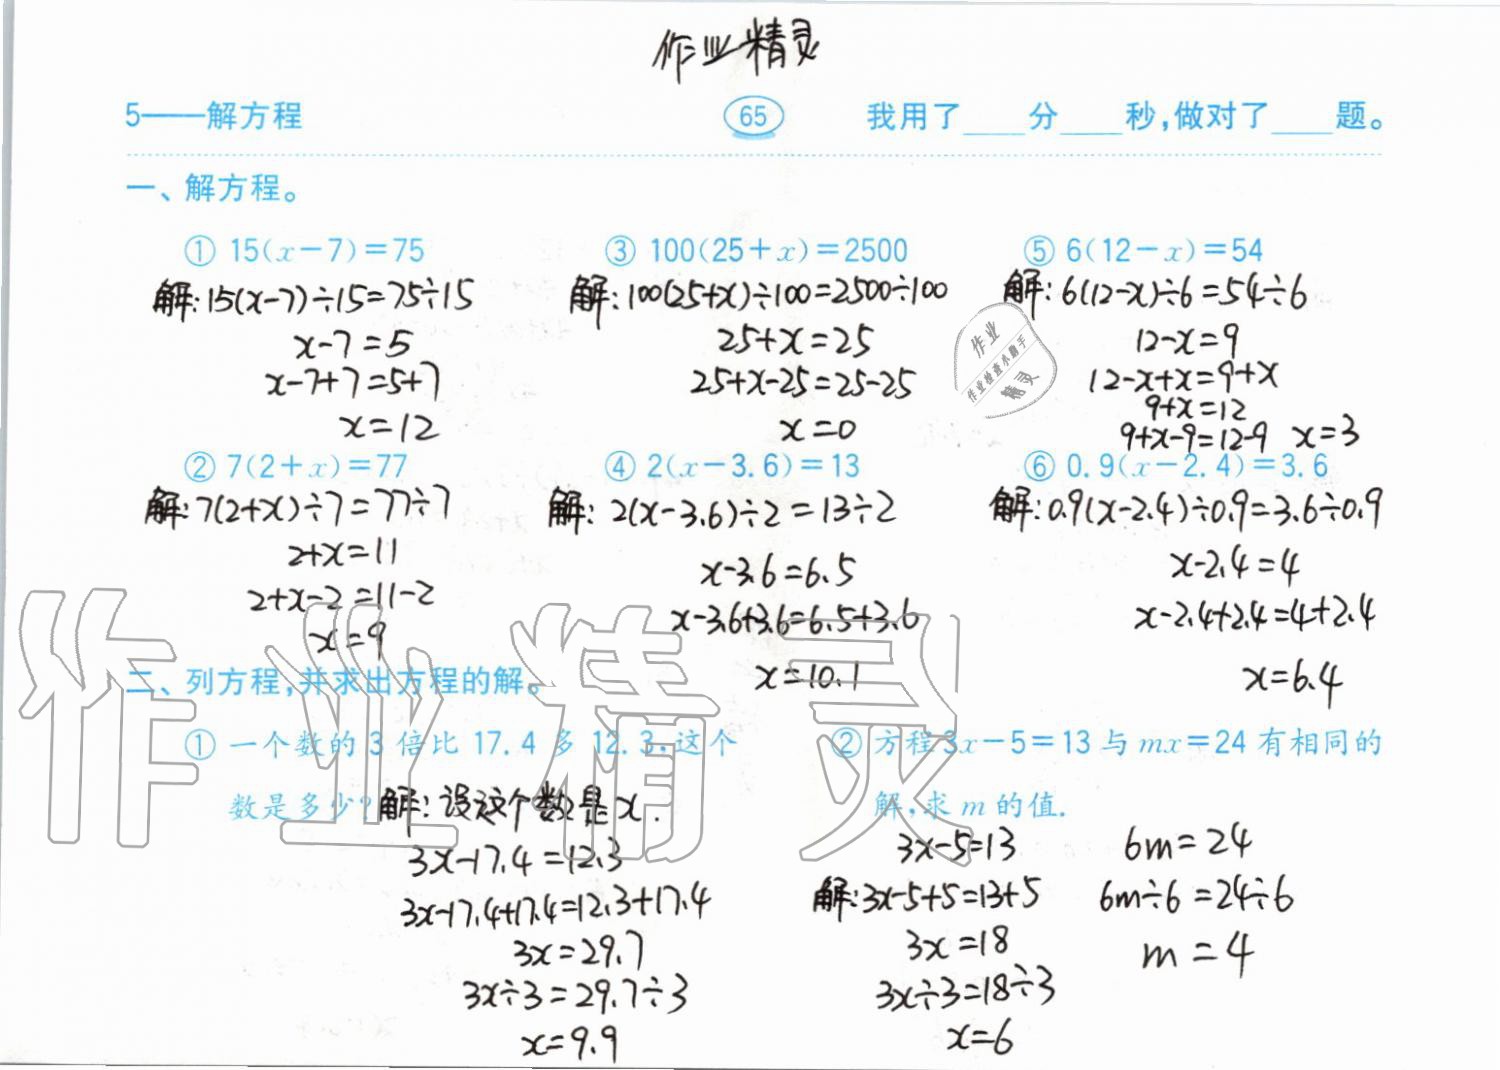 作业精灵
5——解方程 65 我用了____分____秒,做对了____题。
一、解方程。
① 15(x-7)=75
解:15(x-7)÷15=75÷15
x-7=5
x-7+7=5+7
x=12
② 7(2+x)=77
解:7(2+x)÷7=77÷7
2+x=11
2+x-2=11-2
x=9
③ 100(25+x)=2500
解:100(25+x)÷100=2500÷100
25+x=25
25+x-25=25-25
x=0
④ 2(x-3.6)=13
解:2(x-3.6)÷2=13÷2
x-3.6=6.5
x-3.6+3.6=6.5+3.6
x=10.1
⑤ 6(12-x)=54
解:6(12-x)÷6=54÷6
12-x=9
12-x+x=9+x
9+x=12
9+x-9=12-9 x=3
⑥ 0.9(x-2.4)=3.6
解:0.9(x-2.4)÷0.9=3.6÷0.9
x-2.4=4
x-2.4+2.4=4+2.4
x=6.4
作业
作业检查小助手
精灵
二、列方程,并求出方程的解。
① 一个数的3倍比17.4多12.3,这个
数是多少?
解:设这个数是x.
3x-17.4=12.3
3x-17.4+17.4=12.3+17.4
3x=29.7
3x÷3=29.7÷3
x=9.9
② 方程3x-5=13与mx=24有相同的
解,求m的值.
3x-5=13
解:3x-5+5=13+5
3x=18
3x÷3=18÷3
x=6
6m=24
6m÷6=24÷6
m=4
作业精灵